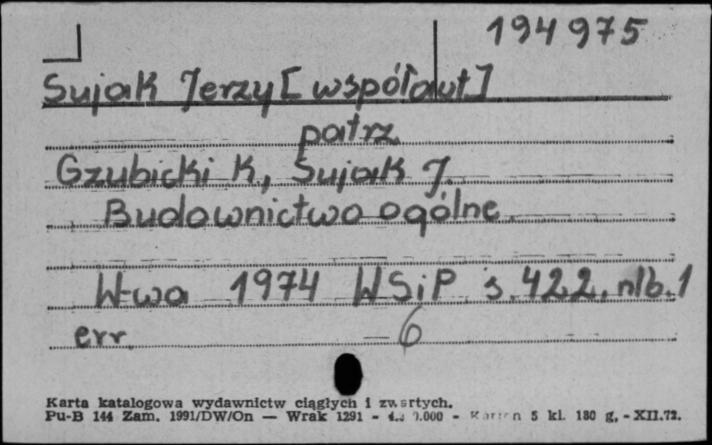 194975
Sujak Jerzy [współaut]
patrz
Gzubicki K., Sujak J.
Budownictwo ogólne.
W-wa 1974 WSiP s. 422, nlb. 1
err. 6
Karta katalogowa wydawnictw ciągłych i zwartych.
Pu-B 144 Zam. 1991/DW/On — Wrak 1291 - .000 - Karton 5 kl. 180 g. - XII.72.